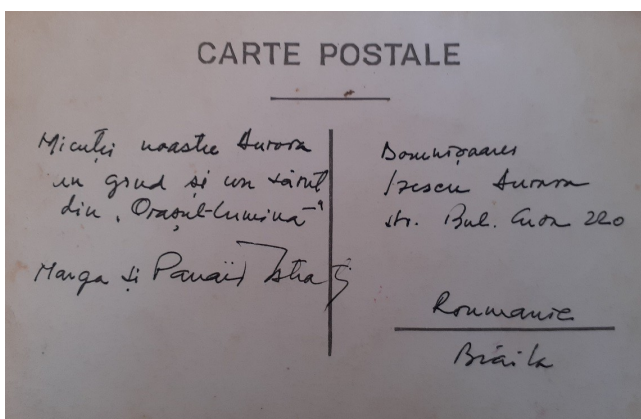 CARTE POSTALE
Micuței noastre Aurora
un gând și un sărut
din „Orașul-lumină"
Marga și Panaït Istrati
Domnișoarei
Izescu Aurora
str. Bul. Cuza 220
Roumanie
Brăila